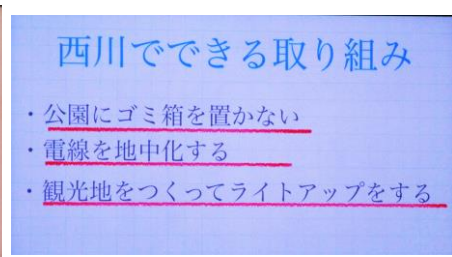 西川でできる取り組み
・公園にゴミ箱を置かない
・電線を地中化する
・観光地をつくってライトアップをする